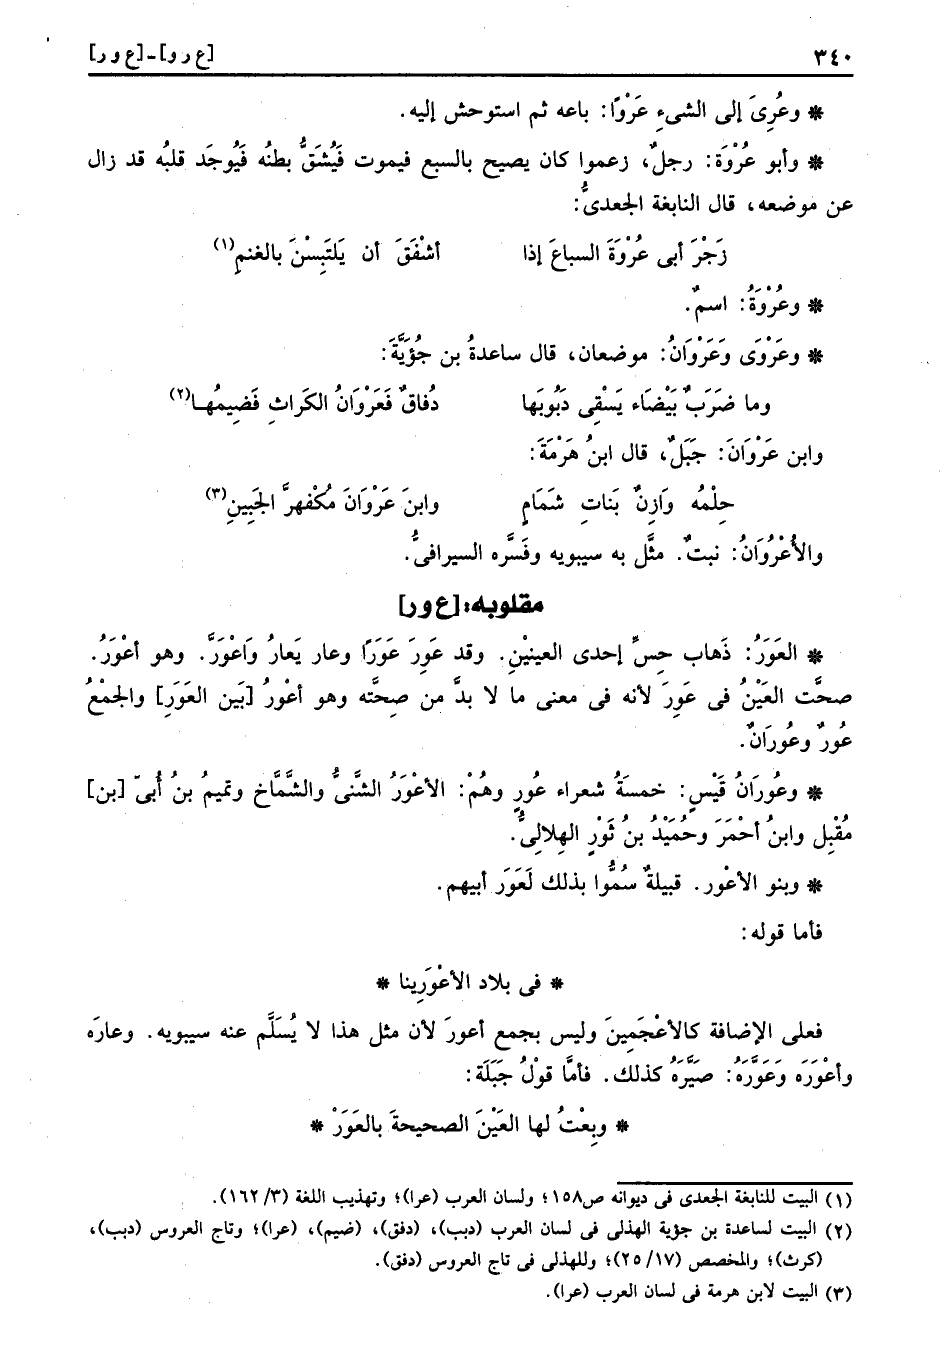 ٣٤٠ [ع ر و]-[ع و ر]
* وعُرِىَ إلى الشىءِ عَرْوًا: باعه ثم استوحش إليه.
* وأبو عُرْوَة: رجلٌ، زعموا كان يصيح بالسبع فيموت فَيُشَقُّ بطنُه فَيُوجَد قلبُه قد زال
عن موضعه، قال النابغة الجعدىُّ:
زَجْرَ أبى عُرْوَةَ السباعَ إذا أشْفَقَ أن يَلتَبِسْنَ بالغنمِ(١)
* وعُرْوَةُ: اسمٌ.
* وعَرْوَى وَعَرْوَانُ: موضعان، قال ساعدةُ بن جُؤَيَّةَ:
وما ضَرَبٌ بَيْضَاء يَسْقِى دَبُوبَها دُفاقٌ فَعَرْوَانُ الكَراثِ فَضِيمُها(٢)
وابن عَرْوَانَ: جَبَلٌ، قال ابنُ هَرْمَةَ:
حِلْمُه وَازِنٌ بَناتِ شَمَامٍ وابنَ عَرْوَانَ مُكْفهرَّ الجَبِينِ(٣)
والأُعْرُوَانُ: نبتٌ. مثَّل به سيبويه وفَسَّره السيرافىُّ.
مقلوبه: [ع و ر]
* العَوَرُ: ذَهاب حسِّ إحدى العينيْنِ. وقد عَوِرَ عَوَرًا وعار يَعارُ وَاعْوَرَّ. وهو أعْوَرُ.
صحَّت العَيْنُ فى عَوِرَ لأنه فى معنى ما لا بدَّ من صحَّته وهو أعْورُ [بَين العَوَرِ] والجمْعُ
عورٌ وعُورَانٌ.
* وعُورَانُ قَيْسٍ: خمسَةُ شعراء عُورٍ وهُمْ: الأعْوَرُ الشَّنىُّ والشَّمَّاخ وتميمُ بنُ أُبىّ [بن]
مُقْبِل وابنُ أحْمَرَ وحُمَيْدُ بنُ ثَوْرٍ الهِلالىُّ.
* وبنو الأعْور. قبيلةٌ سُمُّوا بذلك لَعَوَرَ أبيهم.
فأما قوله:
* فى بلاد الأعْوَرِينا *
فعلى الإضافة كالأعْجَمِينَ وليس بجمع أعورَ لأن مثل هذا لا يُسَلَّم عنه سيبويه. وعارَه
وأعْوَرَه وَعَوَّرَه: صَيَّرَهُ كذلك. فأمَّا قوْلُ جَبَلَة:
* وبِعْتُ لها العَيْنَ الصحيحةَ بالعَوَرْ *
(١) البيت للنابغة الجعدى فى ديوانه ص١٥٨؛ ولسان العرب (عرا)؛ وتهذيب اللغة (٣/ ١٦٢).
(٢) البيت لساعدة بن جؤية الهذلى فى لسان العرب (دبب)، (دفق)، (ضيم)، (عرا)؛ وتاج العروس (دبب)،
(كرث)؛ والمخصص (١٧/ ٢٥)؛ وللهذلى فى تاج العروس (دفق).
(٣) البيت لابن هرمة فى لسان العرب (عرا).